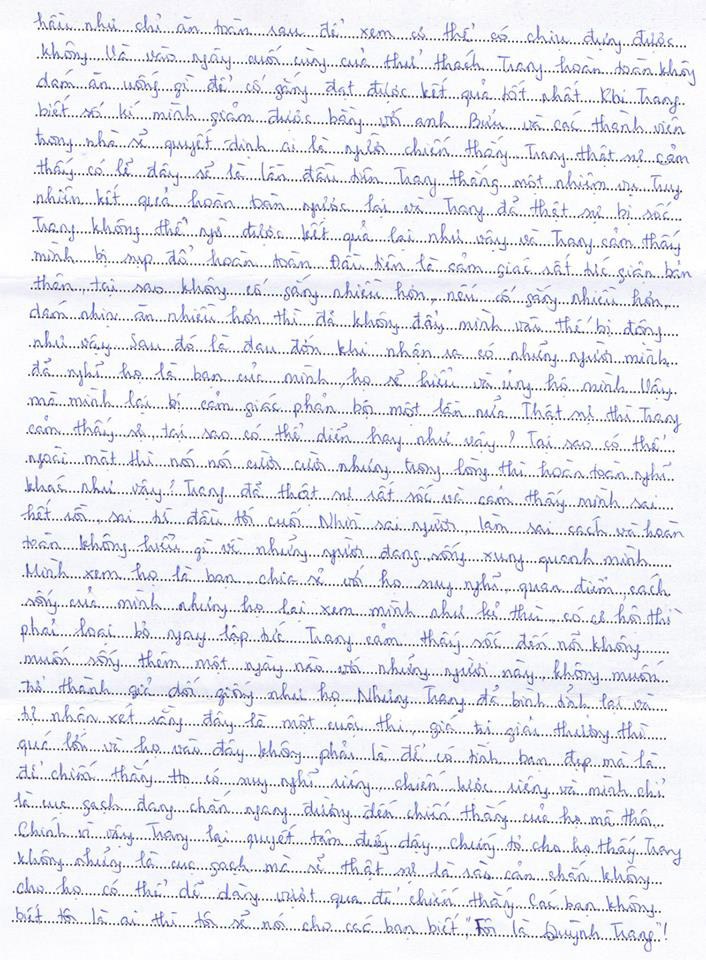 hầu như chỉ ăn toàn rau để xem có thể có chịu đựng được
không. Và vào ngày cuối cùng của thử thách Trang hoàn toàn không
dám ăn uống gì để cố gắng đạt được kết quả tốt nhất. Khi Trang
biết số kí mình giảm được bằng với anh Bửu và các thành viên
trong nhà sẽ quyết định ai là người chiến thắng. Trang thật sự cảm
thấy có lẽ đây sẽ là lần đầu tiên Trang thắng một nhiệm vụ. Tuy
nhiên kết quả hoàn toàn ngược lại và Trang đã thật sự bị sốc.
Trang không thể ngờ được kết quả lại như vậy và Trang cảm thấy
mình bị sụp đổ hoàn toàn. Đầu tiên là cảm giác rất tức giận bản
thân, tại sao không cố gắng nhiều hơn, nếu cố gắng nhiều hơn,
dám nhịn ăn nhiều hơn thì đã không đẩy mình vào thế bị động
như vậy. Sau đó là đau đớn khi nhận ra có những người mình
đã nghĩ họ là bạn của mình, họ sẽ hiểu và ủng hộ mình. Vậy
mà mình lại bị cảm giác phản bội một lần nữa. Thật sự thì Trang
cảm thấy sợ, tại sao có thể diễn hay như vậy? Tại sao có thể
ngoài mặt thì nói nói cười cười nhưng trong lòng thì hoàn toàn nghĩ
khác như vậy? Trang đã thật sự rất sốc và cảm thấy mình sai
hết rồi, sai từ đầu tới cuối. Nhìn sai người, làm sai cách và hoàn
toàn không hiểu gì về những người đang sống xung quanh mình.
Mình xem họ là bạn, chia sẻ với họ suy nghĩ, quan điểm, cách
sống của mình nhưng họ lại xem mình như kẻ thù, có cơ hội thì
phải loại bỏ ngay lập tức. Trang cảm thấy sốc đến nỗi không
muốn sống thêm một ngày nào với những người này, không muốn
trở thành giả dối giống như họ. Nhưng Trang đã bình tỉnh lại và
tự nhận xét rằng đây là một cuộc thi, giá trị giải thưởng thì
quá lớn và họ vào đây không phải là để có tình bạn đẹp mà là
để chiến thắng. Họ có suy nghĩ riêng, chiến lược riêng và mình chỉ
là cục gạch đang chắn ngang đường đến chiến thắng của họ mà thôi.
Chính vì vậy, Trang lại quyết tâm đứng dậy, chứng tỏ cho họ thấy Trang
không những là cục gạch mà sẽ thật sự là rào cản chắn không
cho họ có thể dễ dàng vượt qua để chiến thắng. Các bạn không
biết tôi là ai thì tôi sẽ nói cho các bạn biết, "Tôi là Quỳnh Trang"!